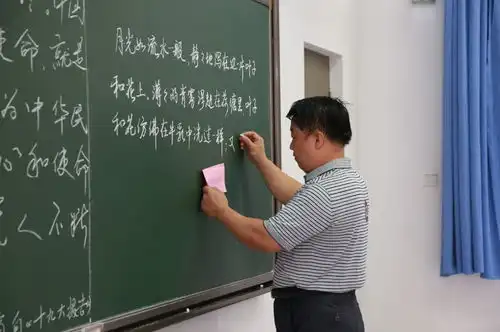 中国
使命,就是
为中华民
心和使命
人不断
十九大报告
月光如流水一般,静々地泻在这一片叶子
和花上。薄々的青雾浮起在荷塘里 叶子
和花仿佛在牛乳中洗过一样;又